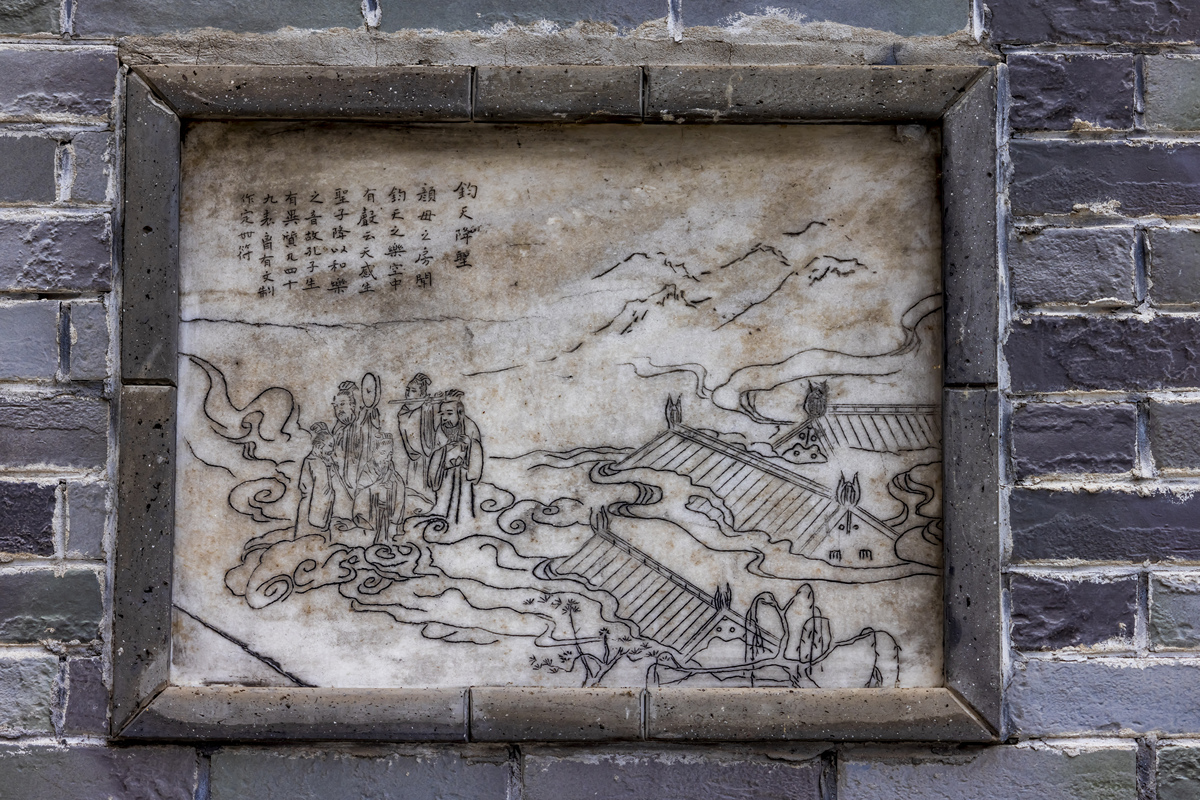 鈞天降聖
顏母之房聞
鈞天之樂空中
有聲云天感生
聖子降以和樂
之音故孔子生
有異質凡四十
九表胷有文制
作定世符